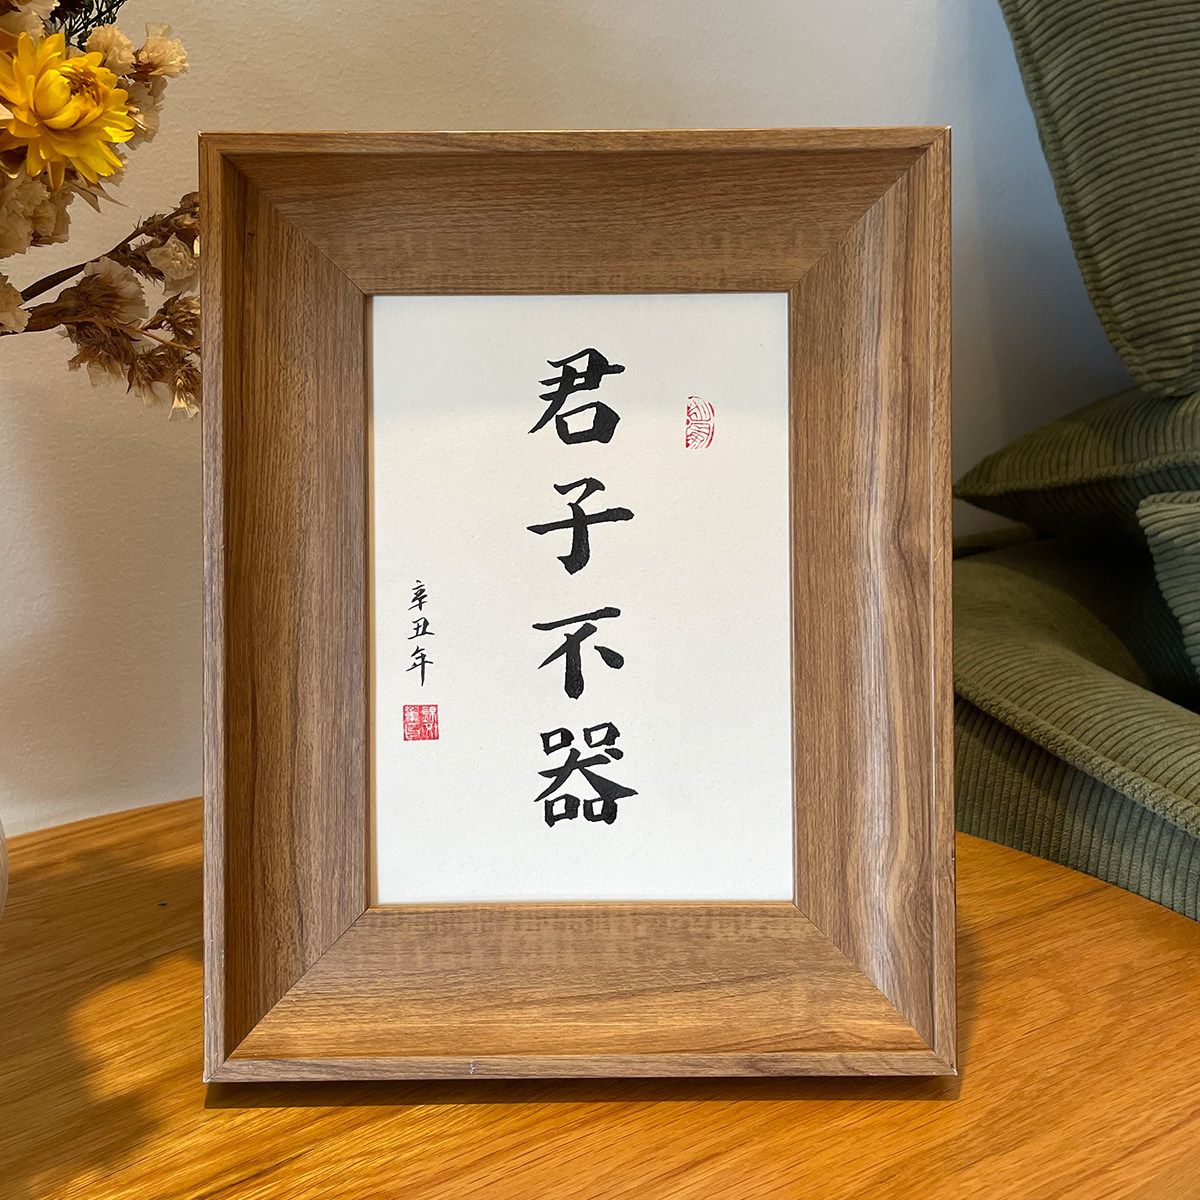 君子不器
辛丑年